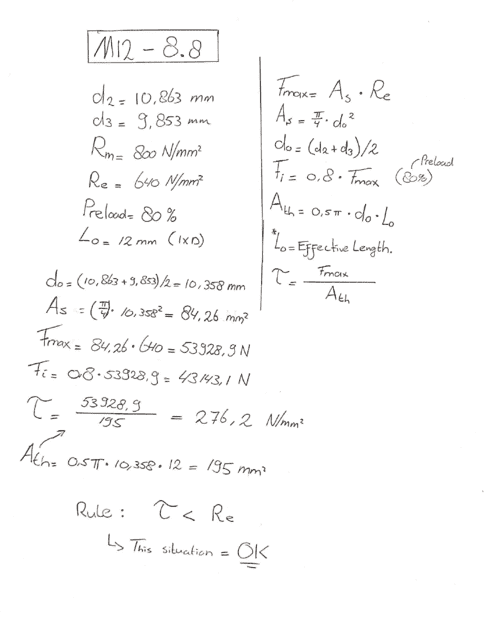 M12 - 8.8
d2 = 10,863 mm
d3 = 9,853 mm
Rm = 800 N/mm²
Re = 640 N/mm²
Preload = 80%
Lo = 12 mm (1xD)
Fmax = As · Re
As = π/4 · do²
do = (d2 + d3)/2
Preload
Fi = 0,8 · Fmax (80%)
Ath = 0,5π · do · Lo
*Lo = Effective Length.
τ = Fmax / Ath
do = (10,863 + 9,853)/2 = 10,358 mm
As = (π/4) · 10,358² = 84,26 mm²
Fmax = 84,26 · 640 = 53928,9 N
Fi = 0,8 · 53928,9 = 43143,1 N
τ = 53928,9 / 195 = 276,2 N/mm²
Ath = 0,5π · 10,358 · 12 = 195 mm²
Rule: τ < Re
↳ This situation = OK